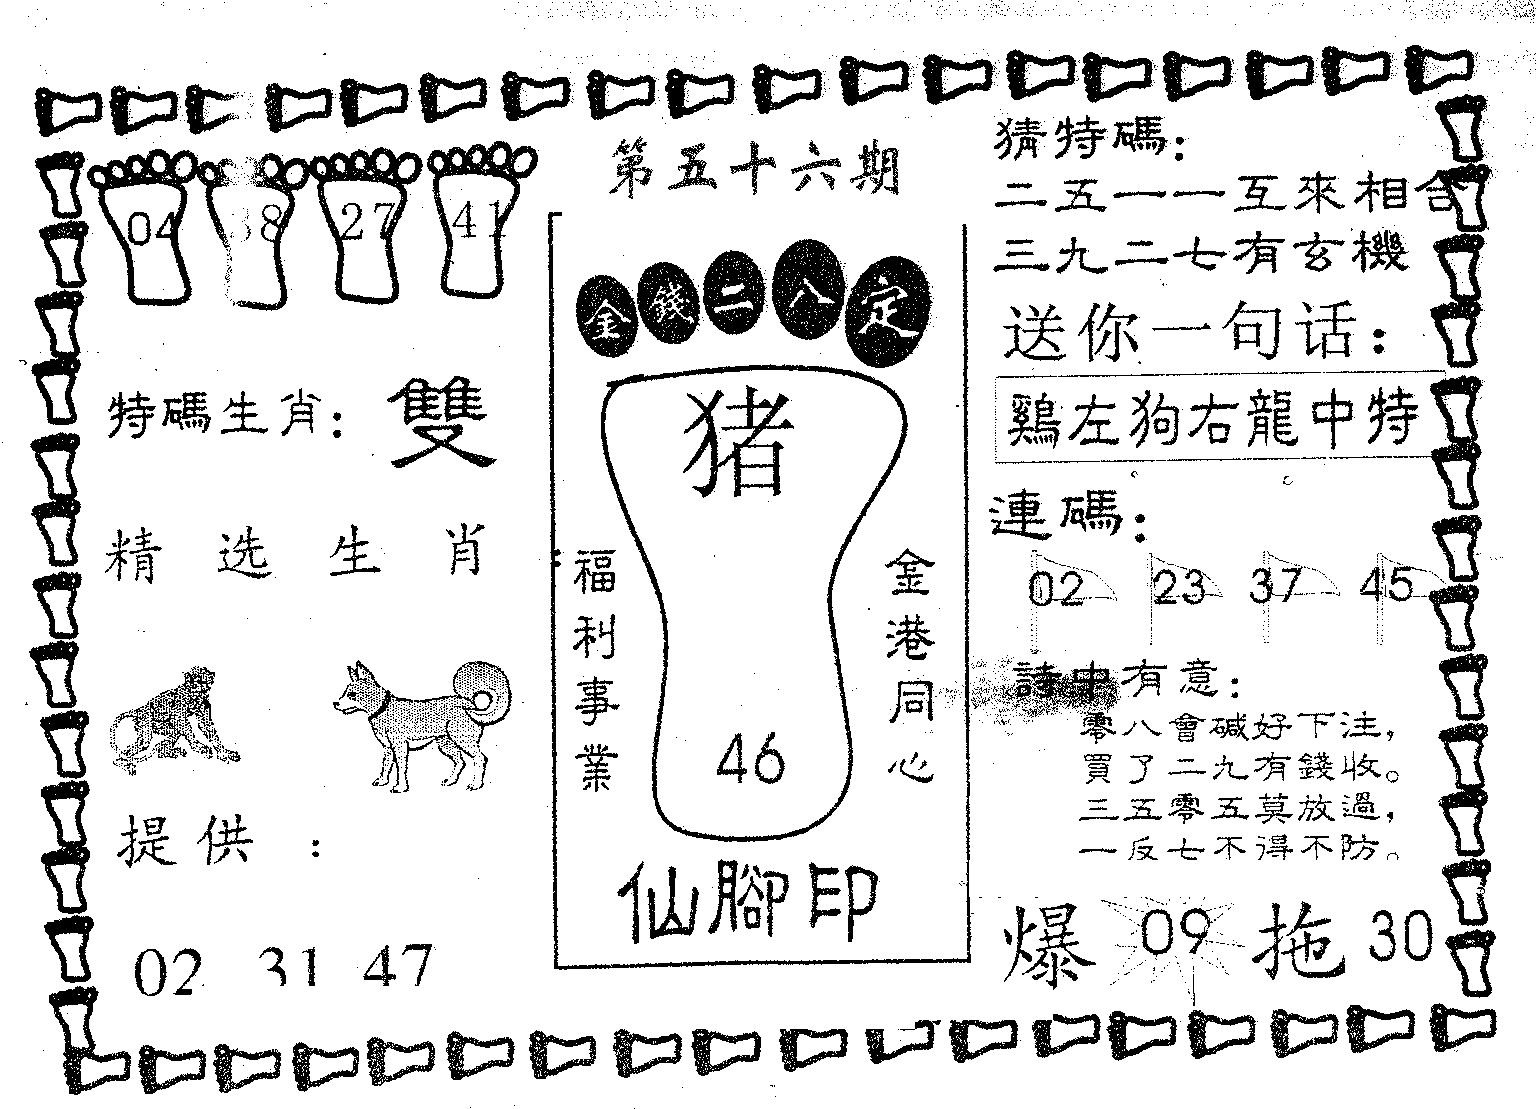 第五十六期
04 38 27 41
特碼生肖：雙
精选生肖：
提供：
02 31 47
金錢二八定
猪
福利事業
金港同心
46
仙腳印
猜特碼：
二五一一互來相合
三九二七有玄機
送你一句话：
鷄左狗右龍中特
連碼：
02 23 37 45
詩中有意：
零八會碱好下注，
買了二九有錢收。
三五零五莫放過，
一反七不得不防。
爆 09 拖 30